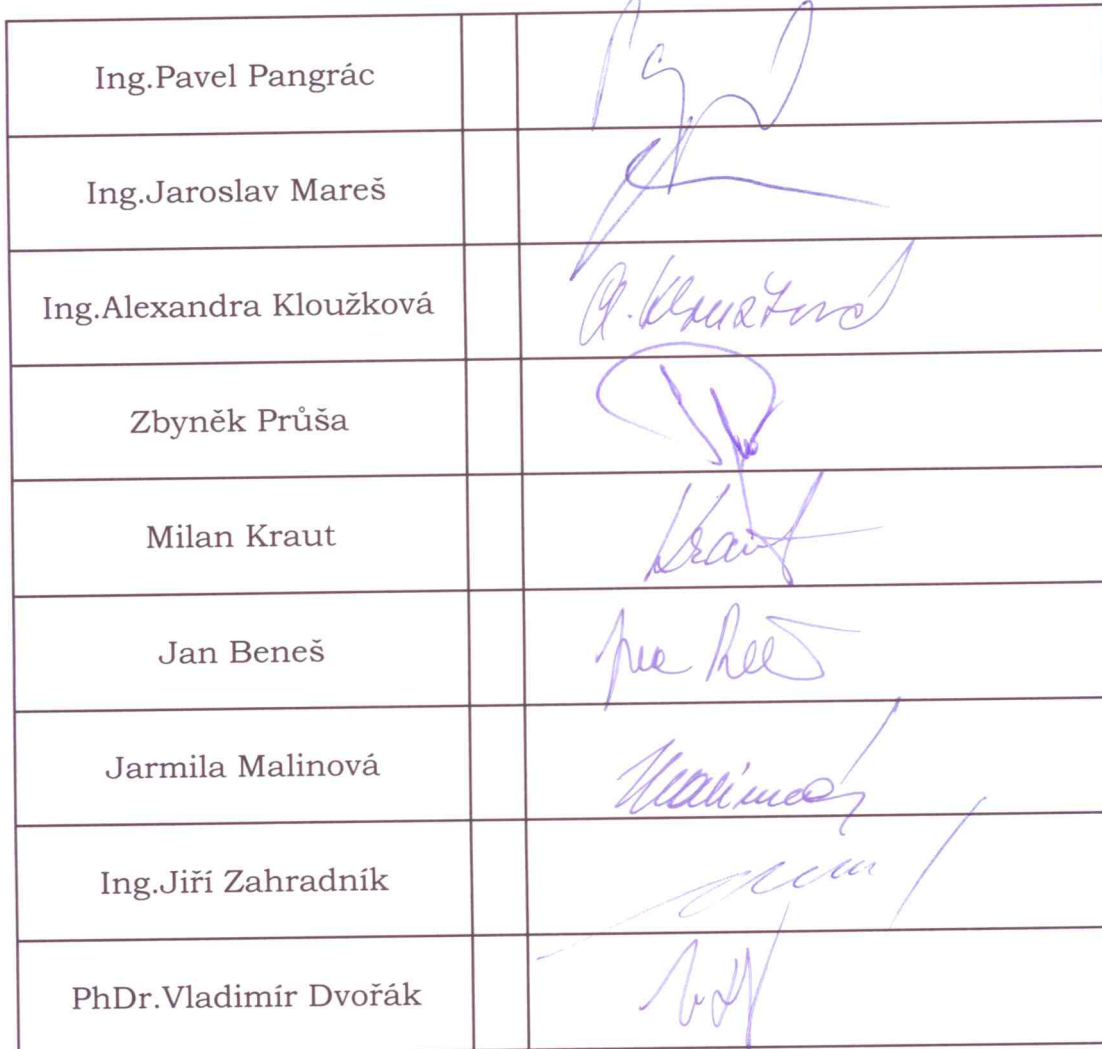 Ing.Pavel Pangrác
Ing.Jaroslav Mareš
Ing.Alexandra Kloužková
A. Kloužková
Zbyněk Průša
Milan Kraut
Kraut
Jan Beneš
Jarmila Malinová
Malinová
Ing.Jiří Zahradník
PhDr.Vladimír Dvořák